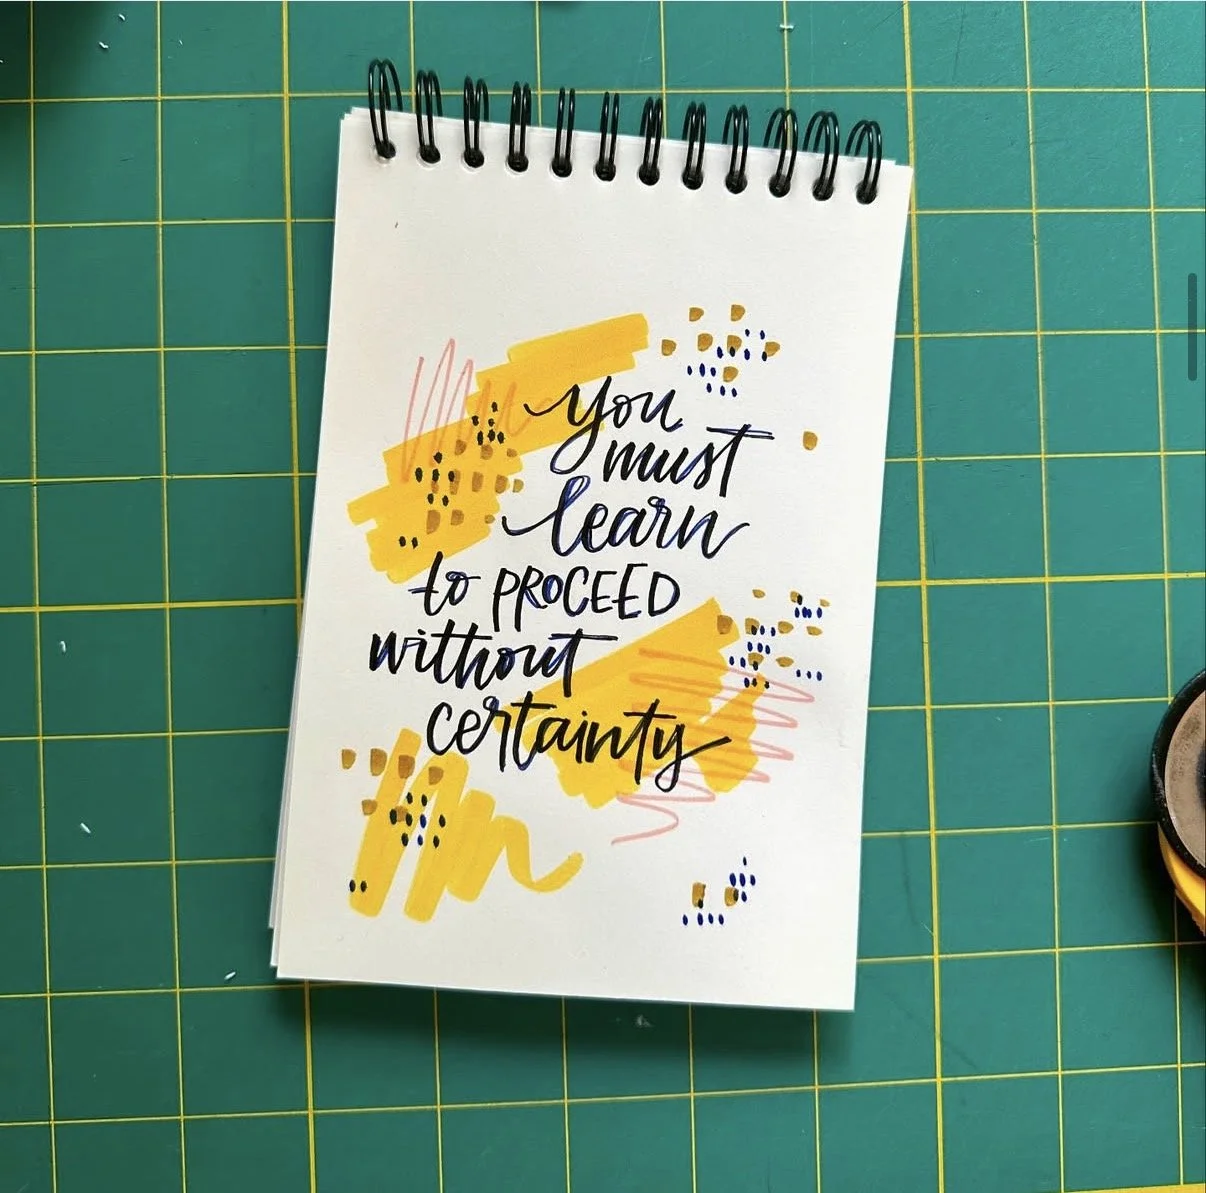 you
must
learn
to PROCEED
without
certainty